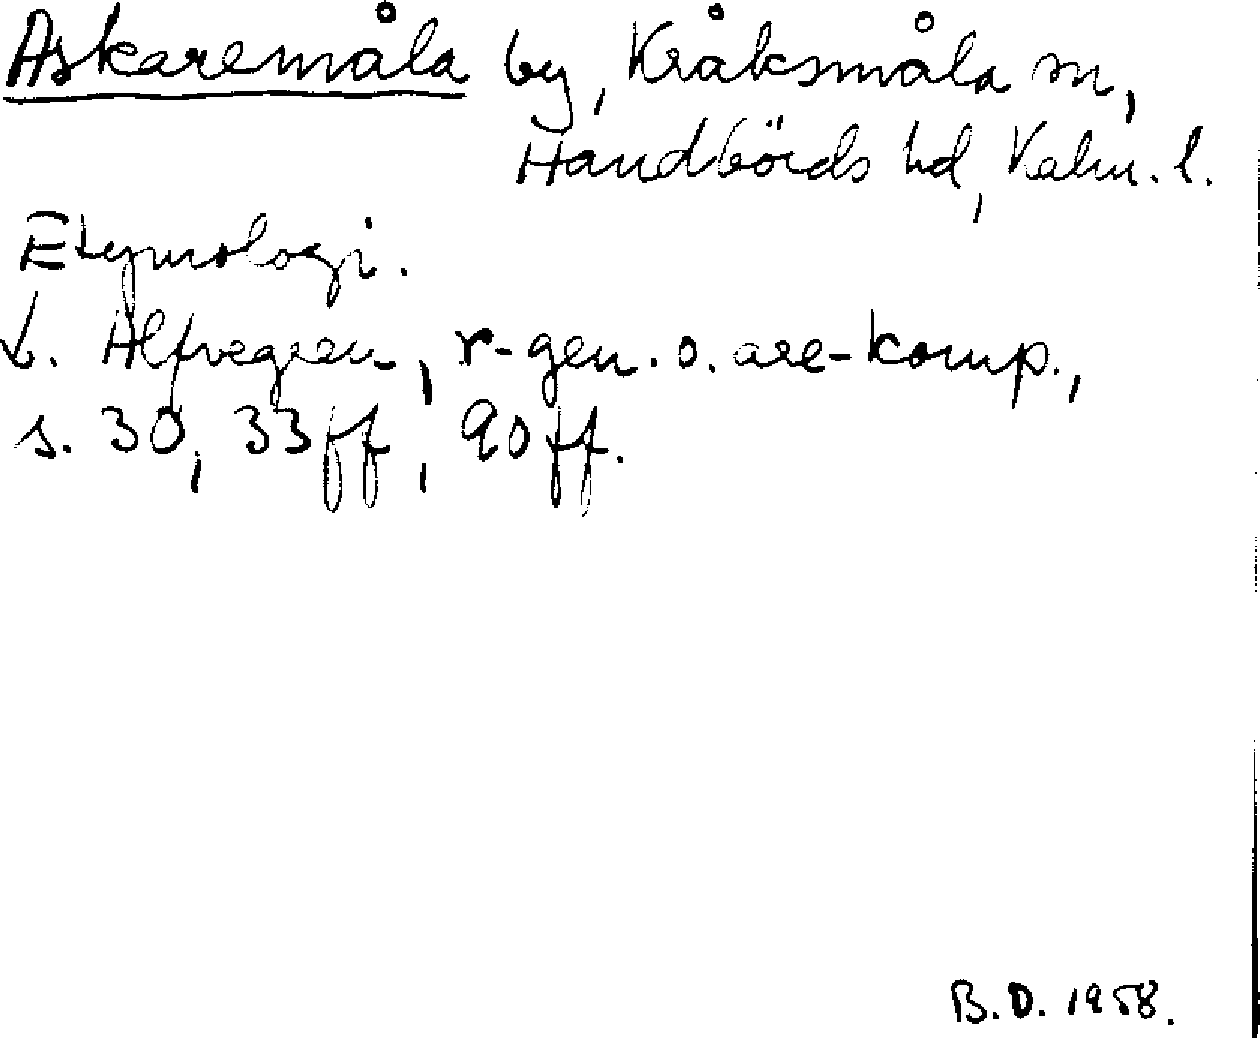 Askaremåla by, Kråksmåla sn,
Handbörds hd, Kalm. l.
Etymologi.
L. Alfvegren, r-gen. o. are-komp.,
s. 30, 33ff, 90ff.
B.D. 1958.